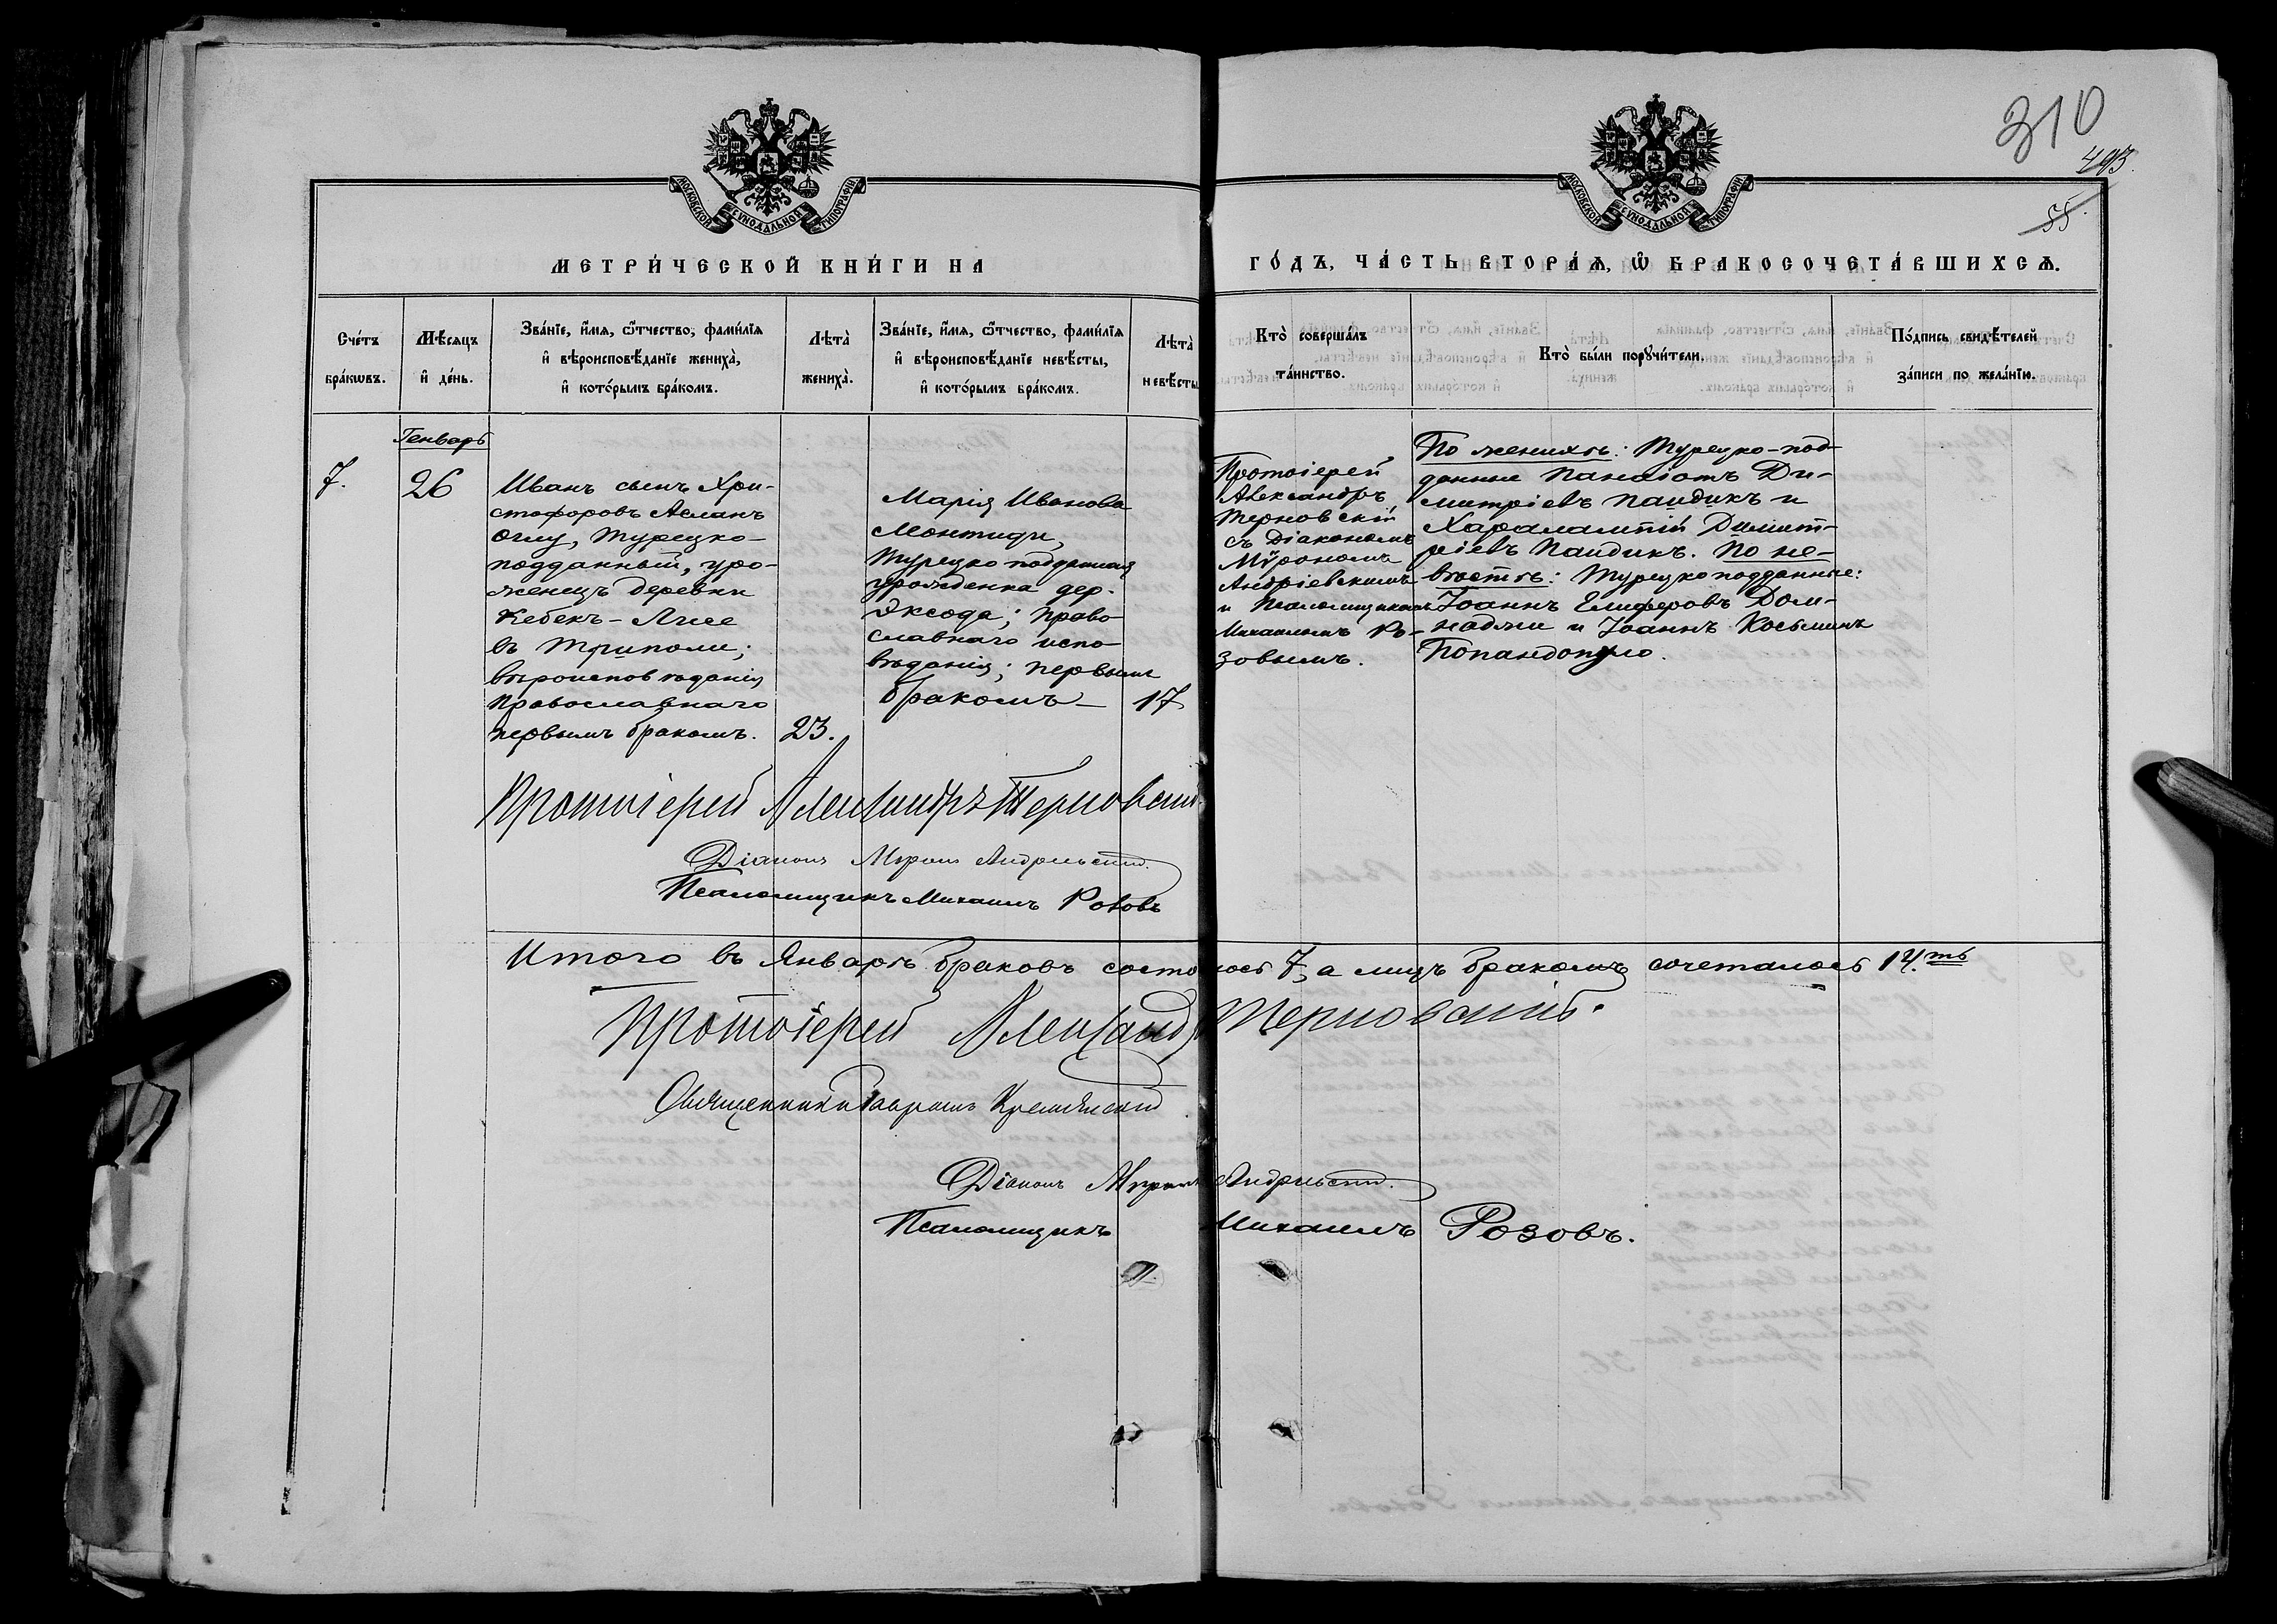 310
493.
55.
МОСКОВСКОЙ СѴНОДАЛЬНОЙ ТИПОГРАФІИ.
МОСКОВСКОЙ СѴНОДАЛЬНОЙ ТИПОГРАФІИ.
МЕТРИ́ЧЕСКОЙ КНИ́ГИ НА
ГО́ДЪ, ЧА́СТЬ ВТОРА́Ѧ, Ѽ БРАКОСОЧЕТА́ВШИХСѦ.
Сче́тъ бра́кѡвъ.
Мѣ́сѧцъ и҆ де́нь.
Зва́нїе, и҆́мѧ, ѻ҆́тчество, фами́лїѧ и҆ вѣроисповѣ́данїе жениха̀, и҆ кото́рымъ бра́комъ.
Лѣ́та̀ жениха̀.
Зва́нїе, и҆́мѧ, ѻ҆́тчество, фами́лїѧ и҆ вѣроисповѣ́данїе невѣ́сты, и҆ кото́рымъ бра́комъ.
Лѣ́та̀ невѣ́сты
Кто̀ соверша́лъ та́инство.
Кто̀ бы́ли порꙋчи́тели.
По́дпись свидѣ́телей за́писи по жела́нїю.
Генварь
7.
26
Иванъ сынъ Хри-
стофоровъ Асланъ
Оглу, Турецко-
подданный, уро-
женецъ деревни
Кебекъ-Лисе
въ Триполи;
вѣроисповѣданія
Православнаго
первымъ бракомъ.
23.
Марія Иванова
Монтиди,
Турецкоподданная
урожденка дер.
Эксода; право-
славнаго испо-
вѣданія; первымъ
бракомъ
17
Протоіерей
Александръ
Терновскій
съ Діакономъ
Мѵрономъ
Андріевскимъ
и Псаломщикомъ
Михаиломъ Ро-
зовымъ.
По женихѣ: Турецко-под-
данные Панаіотъ Ди-
митріевъ Паидикъ и
Харалампій Димит-
ріевъ Паидикъ. По не-
вѣстѣ: Турецкоподданные:
Іоаннъ Елиферовъ Дом-
наджи и Іоаннъ Косьминъ
Попандопуло.
Протоіерей Александръ Терновскій
Діаконъ Мѵронъ Андріевскій
Псаломщикъ Михаилъ Розовъ
Итого въ Январѣ браковъ состоялось 7, а лицъ бракомъ сочеталось 14.ть
Протоіерей Александръ Терновскій.
Священникъ Гавріилъ
Діаконъ Мѵронъ Андріевскій.
Псаломщикъ Михаилъ Розовъ.